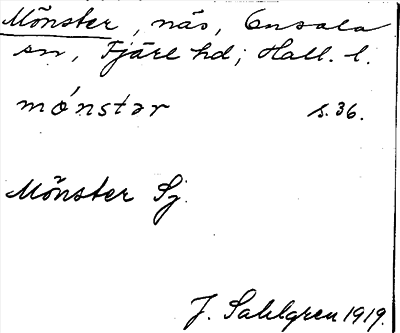 Mönster, näs, Onsala
sn, Fjäre hd; Hall. l.
mó̜nstər s. 36.
Mönster Sj.
J. Sahlgren 1919.